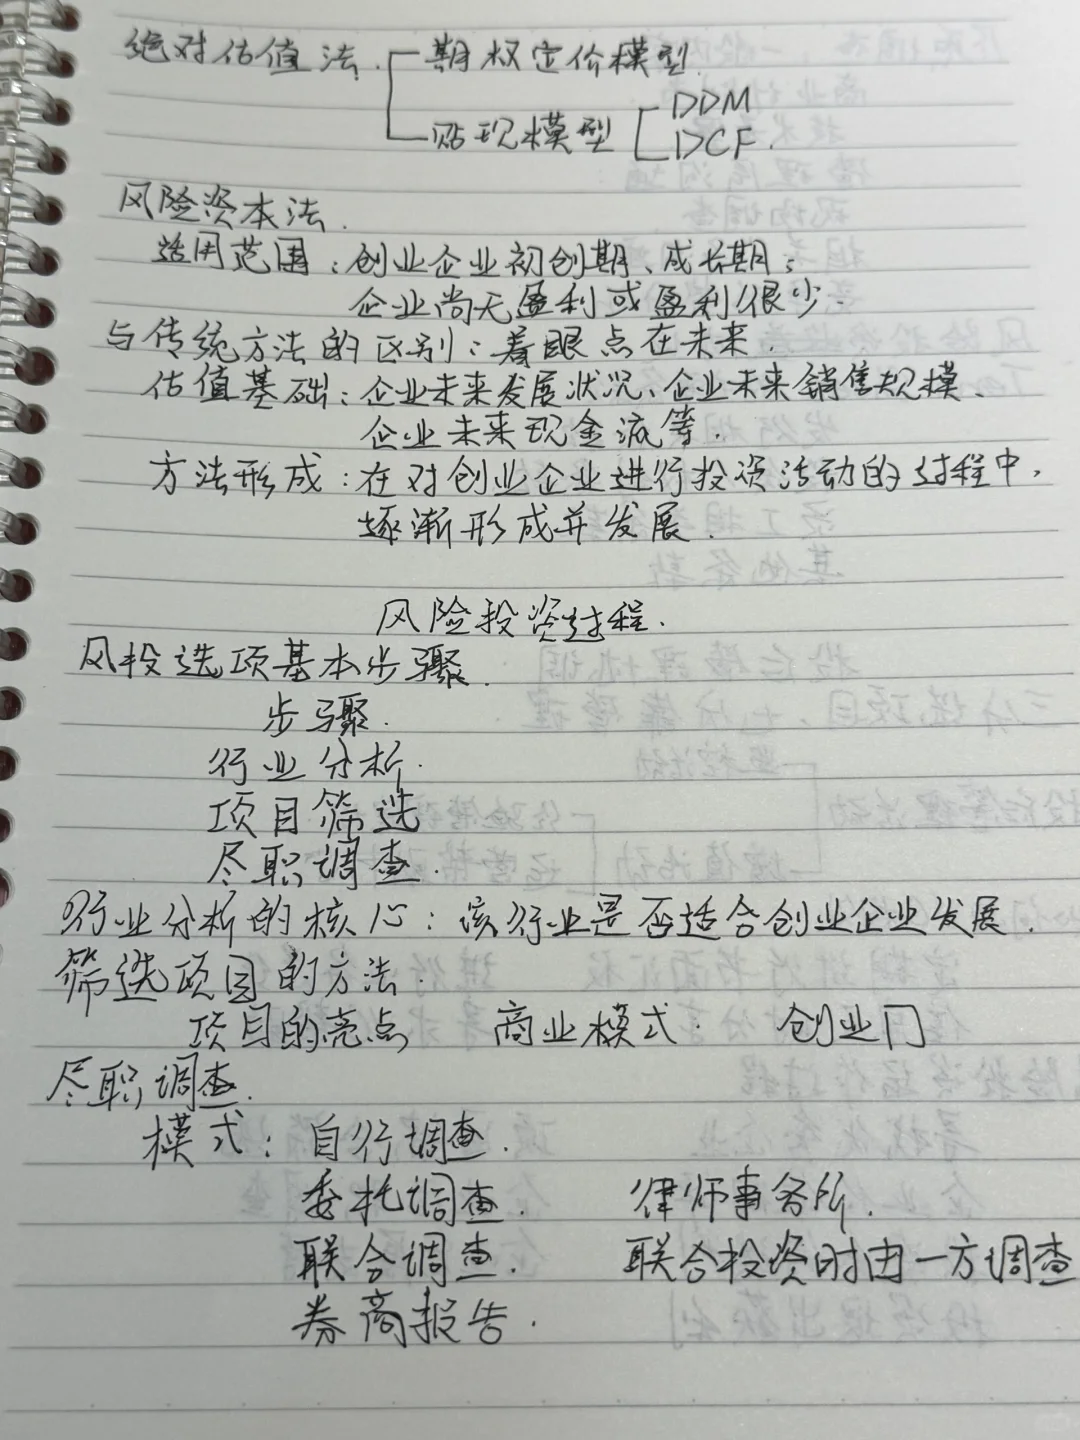 绝对估值法 期权定价模型.
贴现模型 DDM
DCF.
风险资本法.
适用范围:创业企业初创期、成长期;
企业尚无盈利或盈利很少.
与传统方法的区别:着眼点在未来.
估值基础:企业未来发展状况、企业未来销售规模、
企业未来现金流等.
方法形成:在对创业企业进行投资活动的过程中,
逐渐形成并发展.
风险投资过程.
风投选项基本步骤.
步骤.
行业分析.
项目筛选
尽职调查.
行业分析的核心:该行业是否适合创业企业发展.
筛选项目的方法.
项目的亮点 商业模式. 创业门
尽职调查.
模式:自行调查.
委托调查. 律师事务所.
联合调查. 联合投资时由一方调查
券商报告.